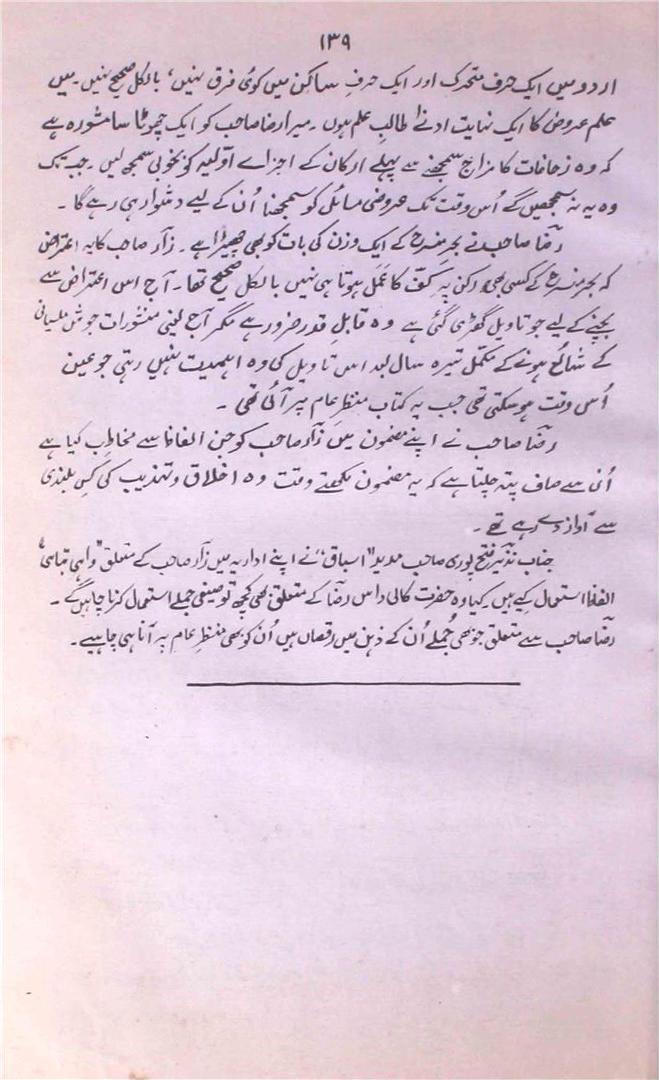 ۱۳۹
اردو میں ایک حرف متحرک اور ایک حرفِ ساکن میں کوئی فرق نہیں، بالکل صحیح نہیں۔ میں
علم عروض کا ایک نہایت ادنےٰ طالبِ علم ہوں۔ میرا رضا صاحب کو ایک چھوٹا سا مشورہ ہے
کہ وہ زحافات کا مزاج سمجھنے سے پہلے ارکان کے اجزاے اوّلیہ کو بخوبی سمجھ لیں۔ جب تک
وہ یہ نہ سمجھیں گے اُس وقت تک عروضی مسائل کو سمجھنا اُن کے لیے دشوار ہی رہے گا۔
رضؔا صاحب نے بحر منسرح کے ایک وزن کی بات کو بھی چھیڑا ہے۔ زآر صاحب کا یہ اعتراض
کہ بحر منسرح کے کسی بھی رکن پہ کفّ کا عمَل ہوتا ہی نہیں بالکل صحیح تھا۔ آج اس اعتراض سے
بچنے کے لیے جو تاویل گھڑی گئی ہے وہ قابلِ قدر ضرور ہے مگر آج یعنی منشورات جوش ملسیانی
کے شائع ہونے کے مکمل تیرہ سال بعد اس تاویل کی وہ اہمیت نہیں رہتی جو عین
اُس وقت ہو سکتی تھی جب یہ کتاب منظرِ عام پر آئی تھی۔
رضؔا صاحب نے اپنے مضمون میں زآر صاحب کو جن الفاظ سے مخاطب کیا ہے
اُن سے صاف پتہ چلتا ہے کہ یہ مضمون لکھتے وقت وہ اخلاق و تہذیب کی کس بلندی
سے آواز دے رہے تھے۔
جناب نذیر فتح پوری صاحب مدیر "اسباق" نے اپنے اداریہ میں زآر صاحب کے متعلق "واہی تباہی"
الفاظ استعمال کیے ہیں۔ کیا وہ حضرت کالی داس رضؔا کے متعلق بھی کچھ توصیفی جملے استعمال کرنا چاہیں گے۔
رضؔا صاحب سے متعلق جو بھی جُملے اُن کے ذہن میں رقصاں ہیں اُن کو بھی منظرِ عام پر آنا ہی چاہیے۔